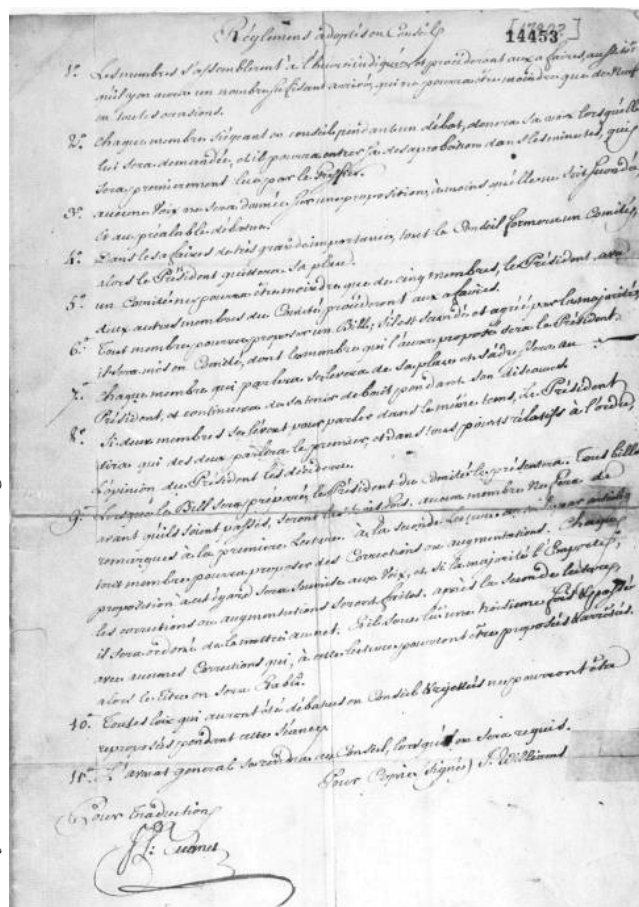 [1792?]
14453
Réglemens adoptés en Conseil
1º. Les membres s'assembleront à l'heure indiquée, et procéderont aux afaires, aussitôt
qu'il y en aura un nombre sufisant arrivé, qui ne pourra être moindre que de Neuf
en toutes occasions.
2º. Chaque membre siégeant en conseil pendant un débat, donnera sa voix lorsqu'elle
lui sera demandée, et il pourra entrer sa desaprobation dans les minutes, qui
sera premierement lue par le Greffier.
3º. aucune Voix ne sera donnée sur une proposition, à moins qu'elle ne soit secondée
et au préalable débatue.
4º. Dans les afaires de très grande importance, tout le Conseil formera un Comité,
alors le Président quittera sa place.
5º. un Comité ne pourra être moindre que de cinq membres, le Président, avec
deux autres membres du Comité procéderont aux afaires.
6º. Tout membre pourra proposer un Bill; s'il est secondé et agréé par la majorité
il sera mis en Comité, dont le membre qui l'aura proposé sera le Président.
7º. Chaque membre qui parlera se levera de sa place et s'adressera au
Président, et continuera de se tenir debout pendant son discours.
8º. Si deux membres se lèvent pour parler dans le même tems, Le Président
dira qui des deux parlera le premier, et dans tous points rélatifs à l'ordre,
L'opinion du Président les décidera.
9º. Lorsque le Bill sera préparé, le Président du Comité le présentera. Tous bills
avant qu'ils soient passés, seront lus trois fois. aucun membre ne fera de
remarques à la premiere Lecture. à la seconde Lecture
tout membre pourra proposer des Corrections ou augmentations. Chaque
proposition à cet égard sera soumise aux Voix, et, si la majorité l'emporte,
les corrections ou augmentations seront faites. après la seconde lecture,
il sera ordoné de le mettre au net. Et il sera lu une troisieme fois & passé
avec aucunes Corrections qui, à cette lecture pourront être proposées & arrêtées.
alors le titre en sera établi.
10º. Toutes loix qui auront été débatues en Conseil & rejettées ne pourront être
reproposées pendant cette séance.
11º. L'avocat general se rendra au Conseil, lorsqu'il en sera requis.
Pour Copie (signé) J. Williams
Pour traduction